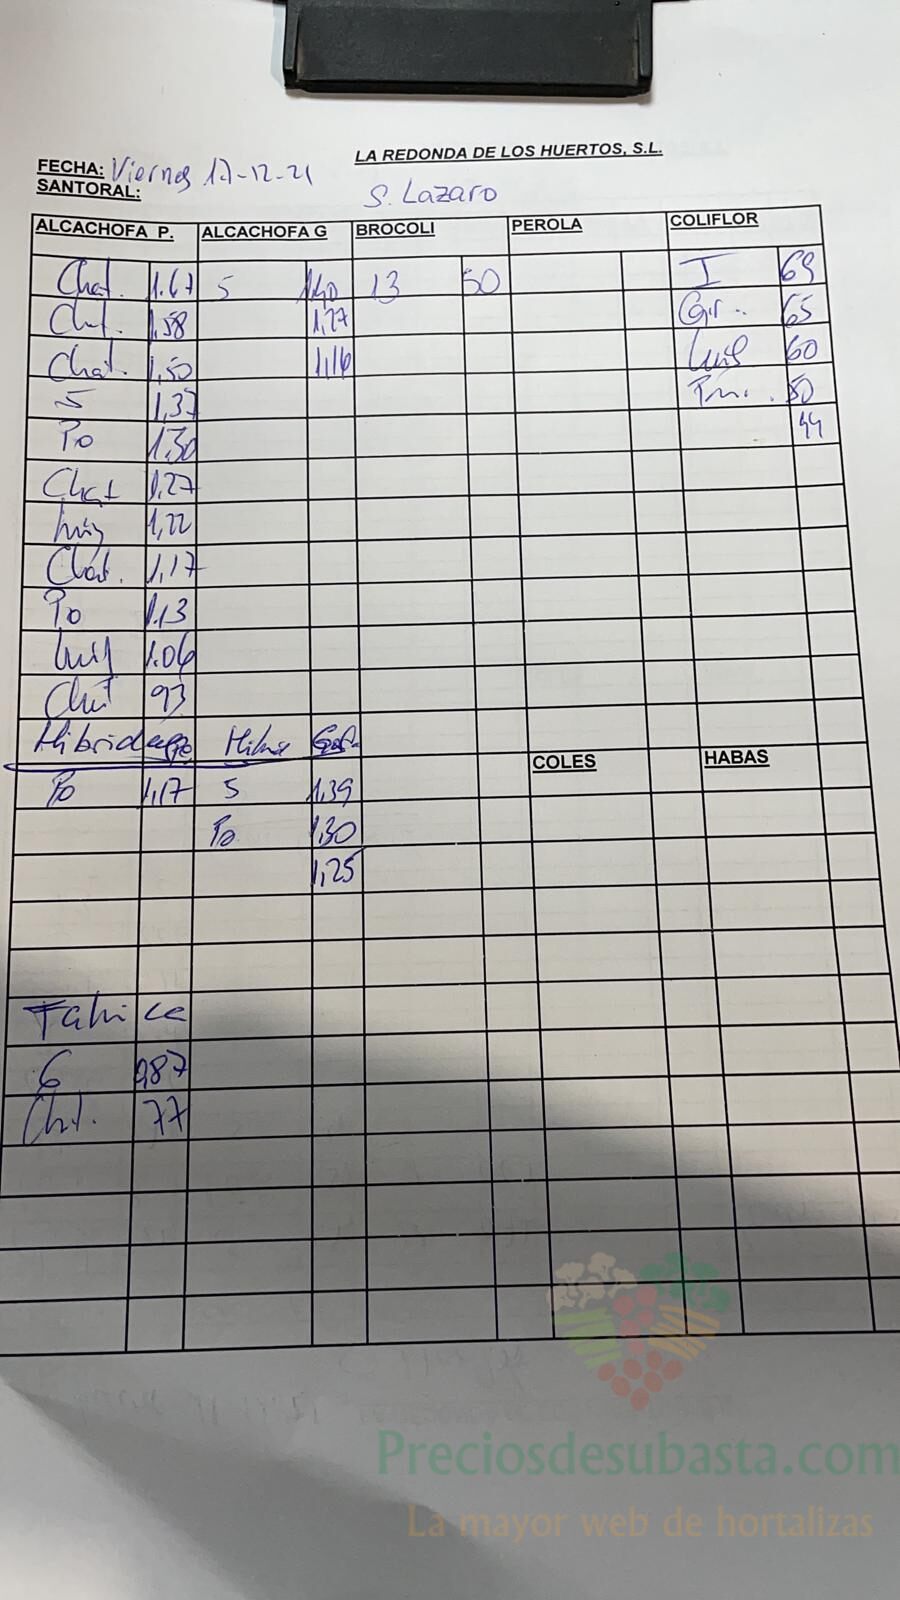 LA REDONDA DE LOS HUERTOS, S.L.
FECHA: Viernes 17-12-21
SANTORAL: S. Lazaro
ALCACHOFA P. ALCACHOFA G BROCOLI PEROLA COLIFLOR
Chat. 1.67 5 1,40 13 50 I 69
Chat. 1,58 1,27 Gr.. 65
Chat. 1,50 1,16 Luis 60
5 1,37 50
Po 1,30 44
Chat 1,27
Luis 1,22
Chat. 1,17
Po 1.13
Luis 1.06
Chat 93
Hibrida
COLES HABAS
Po 1,17 5 1,39
Po 1,30
1,25
Fabrica
6 0,87
Chat. 77
Preciosdesubasta.com
La mayor web de hortalizas